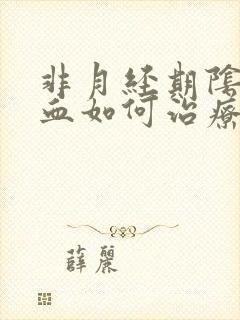 非月經期陰
血如何治療
薛麗